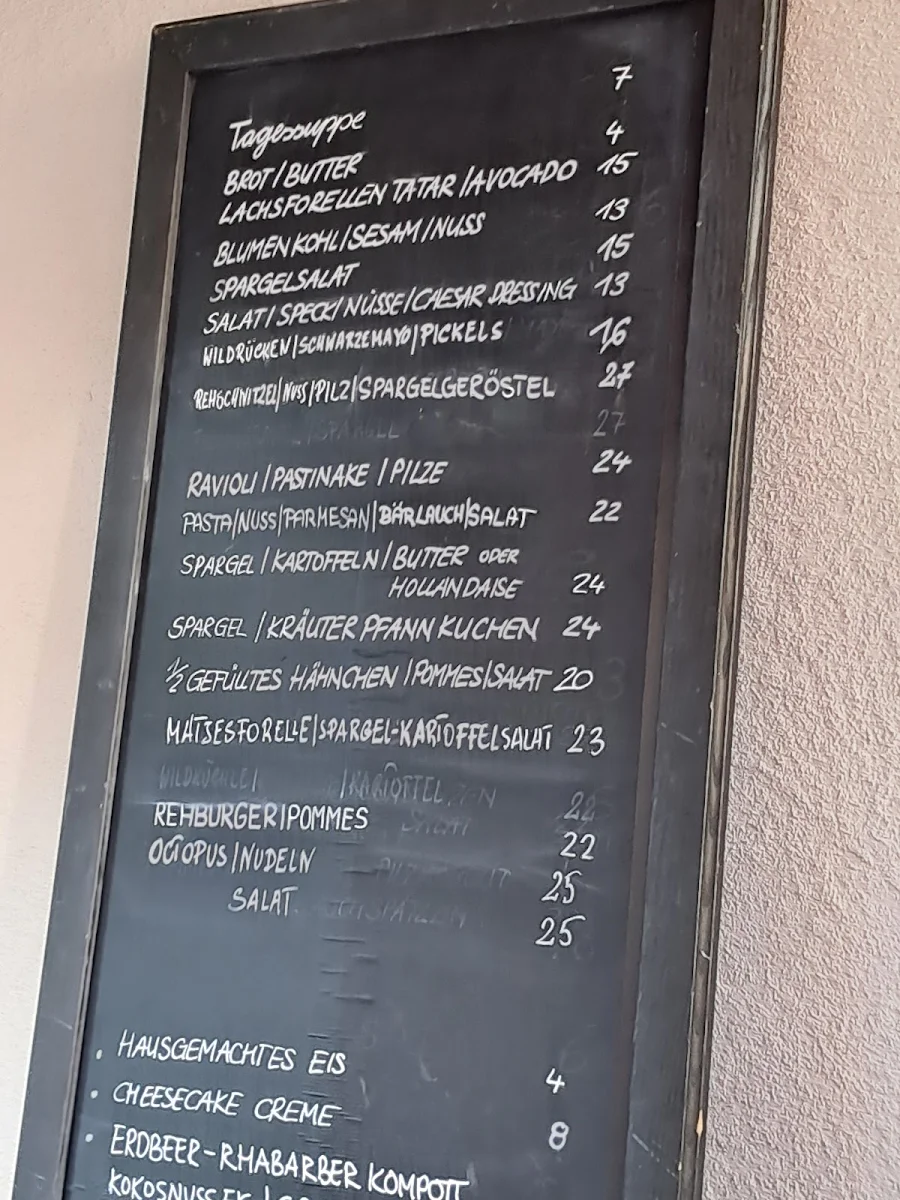 Tagessuppe 7
BROT/BUTTER 4
LACHSFORELLEN TATAR/AVOCADO 15
BLUMENKOHL/SESAM/NUSS 13
SPARGELSALAT 15
SALAT/SPECK/NÜSSE/CAESAR DRESSING 13
WILDRÜCKEN/SCHWARZEMAYO/PICKELS 16
REHSCHNITZEL/NUSS/PILZ/SPARGELGERÖSTEL 27
SPARGEL 27
RAVIOLI/PASTINAKE/PILZE 24
PASTA/NUSS/PARMESAN/BÄRLAUCH/SALAT 22
SPARGEL/KARTOFFELN/BUTTER ODER
HOLLANDAISE 24
SPARGEL/KRÄUTER PFANNKUCHEN 24
1/2 GEFÜLLTES HÄHNCHEN/POMMES/SALAT 20
MATJESFORELLE/SPARGEL-KARTOFFELSALAT 23
REHBURGER/POMMES 22
OCTOPUS/NUDELN 25
SALAT 25
• HAUSGEMACHTES EIS 4
• CHEESECAKE CREME 8
• ERDBEER-RHABARBER KOMPOTT